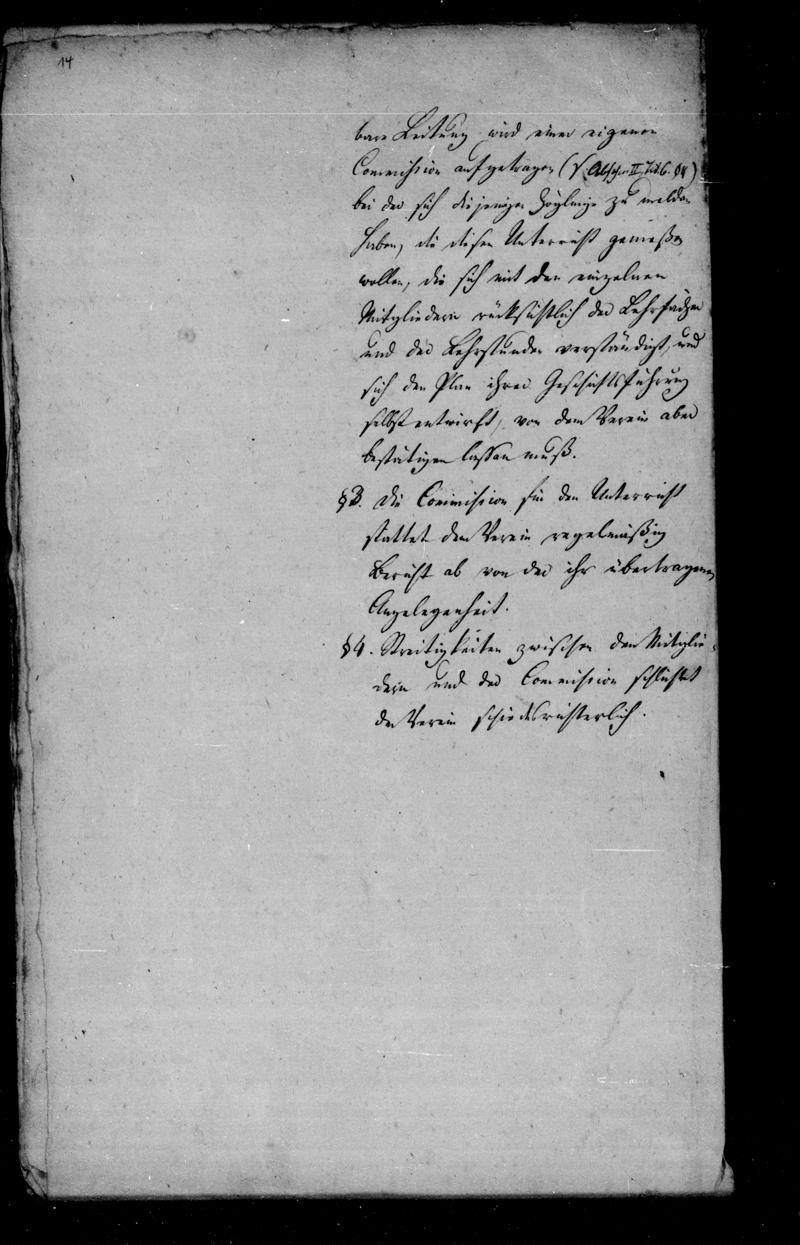 14
bare Leitung wird einer eigenen
Commission aufgetragen (V. Abschn. II. Tit. 6. §4)
bei der sich diejenigen Zöglinge zu melden
haben, die diesen Unterricht genießen
wollen, die sich mit den einzelnen
Mitgliedern rücksichtlich der Lehrfächer
und der Lehrstunden verständigt, und
sich den Plan ihrer Geschäftsführung
selbst entwirft, von dem Verein aber
bestätigen lassen muß.
§3. Die Commission für den Unterricht
stattet dem Verein regelmäßig
Bericht ab von der ihr übertragenen
Angelegenheit.
§4. Streitigkeiten zwischen den Mitglie-
dern und der Commission schlichtet
der Verein schiedsrichterlich.